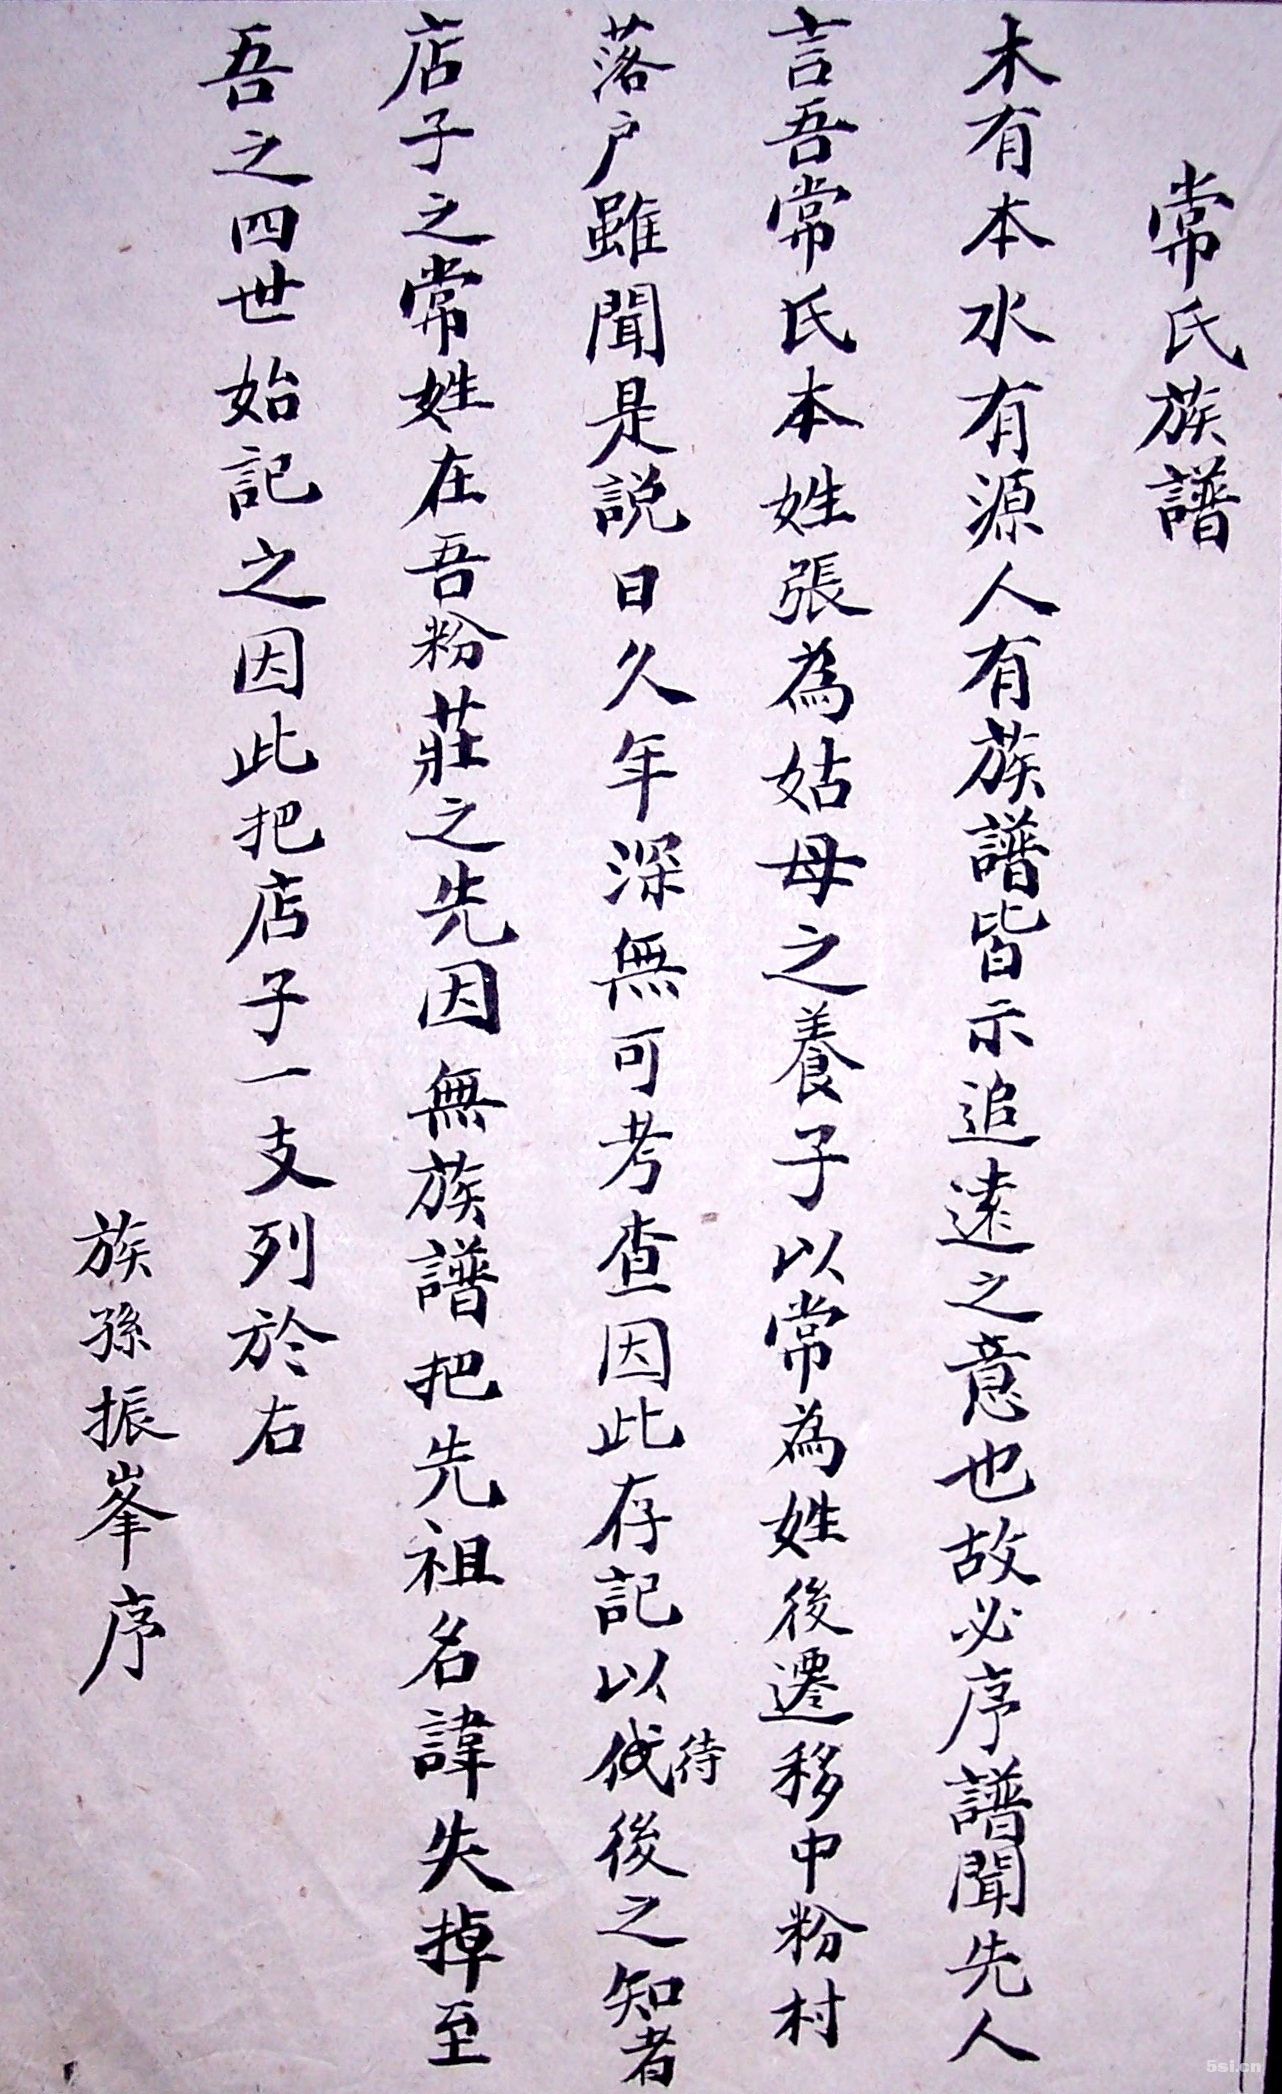 常氏族譜
木有本水有源人有族譜皆示追遠之意也故必序譜聞先人
言吾常氏本姓張為姑母之養子以常為姓後遷移中粉村
落户雖聞是説日久年深無可考查因此存記以伐待後之知者
店子之常姓在吾粉莊之先因無族譜把先祖名諱失掉至
吾之四世始記之因此把店子一支列於右
族孫振峯序
5si.cn